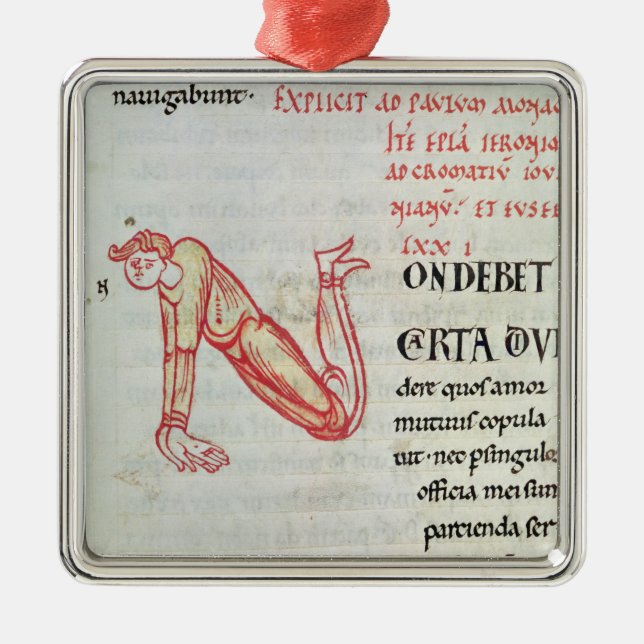 nauigabunt· EXPLICIT AD PAULUM MONAC
ITĒ EPLĀ IERONIM
AD CROMATIŪ IOUI
NIANŪ· ET EUSEB
LXX I
N
ON DEBET
CARTA DIVI
dere quos amor
mutuus copula
uit· nec p singulos
officia mei sunt
partienda ser